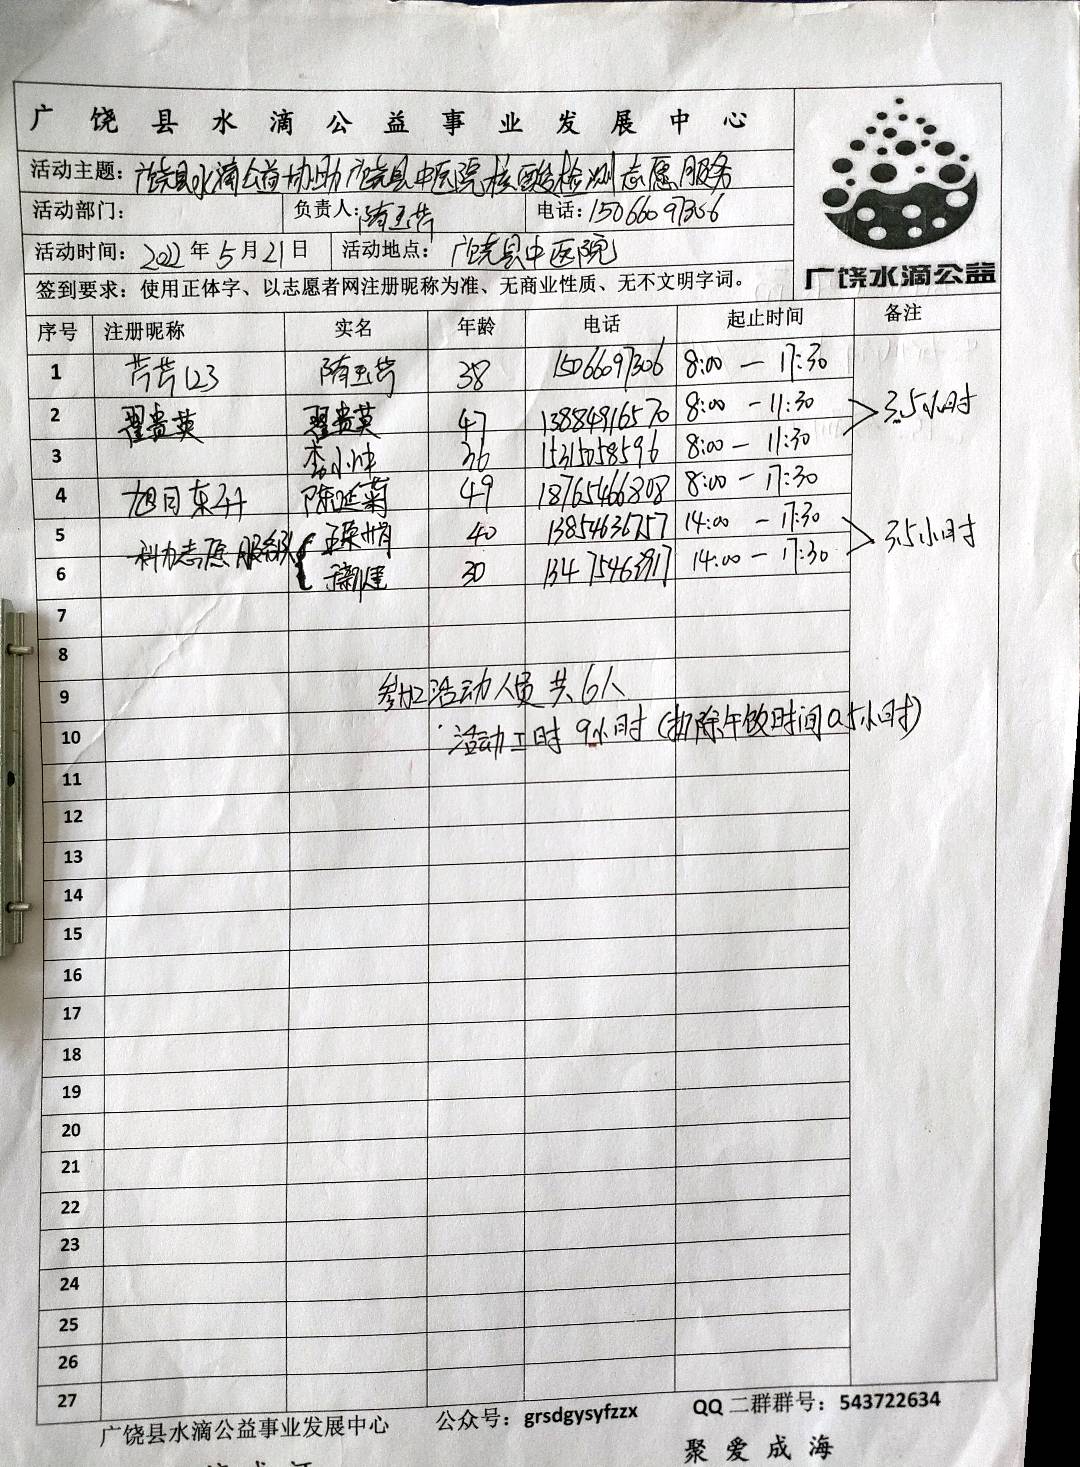 广饶县水滴公益事业发展中心
活动主题：广饶县水滴公益协助广饶县中医院核酸检测志愿服务
活动部门： 负责人：隋玉芳 电话：15066097306
活动时间：2022年5月21日 活动地点：广饶县中医院
广饶水滴公益
签到要求：使用正体字、以志愿者网注册昵称为准、无商业性质、无不文明字词。
序号 注册昵称 实名 年龄 电话 起止时间 备注
1 芳芳123 隋玉芳 38 15066097306 8:00 — 17:30
2 翟贵英 翟贵英 47 13884916570 8:00 — 11:30 3.5小时
3 李小冲 36 15315058596 8:00 — 11:30
4 旭日东升 陈延菊 49 18765466808 8:00 — 17:30
5 科力志愿服务队 40 13854636757 14:00 — 17:30 3.5小时
6 30 14:00 — 17:30
7
8
9 参加活动人员共6人
10 活动工时9小时（扣除午饭时间0.5小时）
11
12
13
14
15
16
17
18
19
20
21
22
23
24
25
26
27
广饶县水滴公益事业发展中心 公众号：grsdgysyfzzx QQ二群群号：543722634
聚爱成海